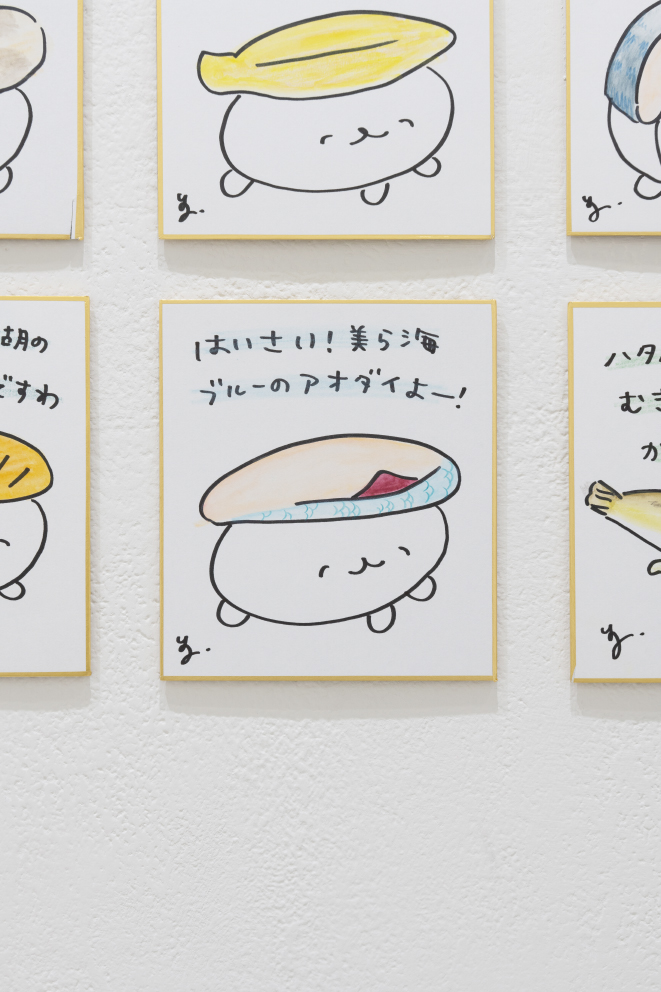 はいさい！美ら海
ブルーのアオダイよー！
湖の
ですわ
ハタ
むき
が
y.
y.
y.
y.